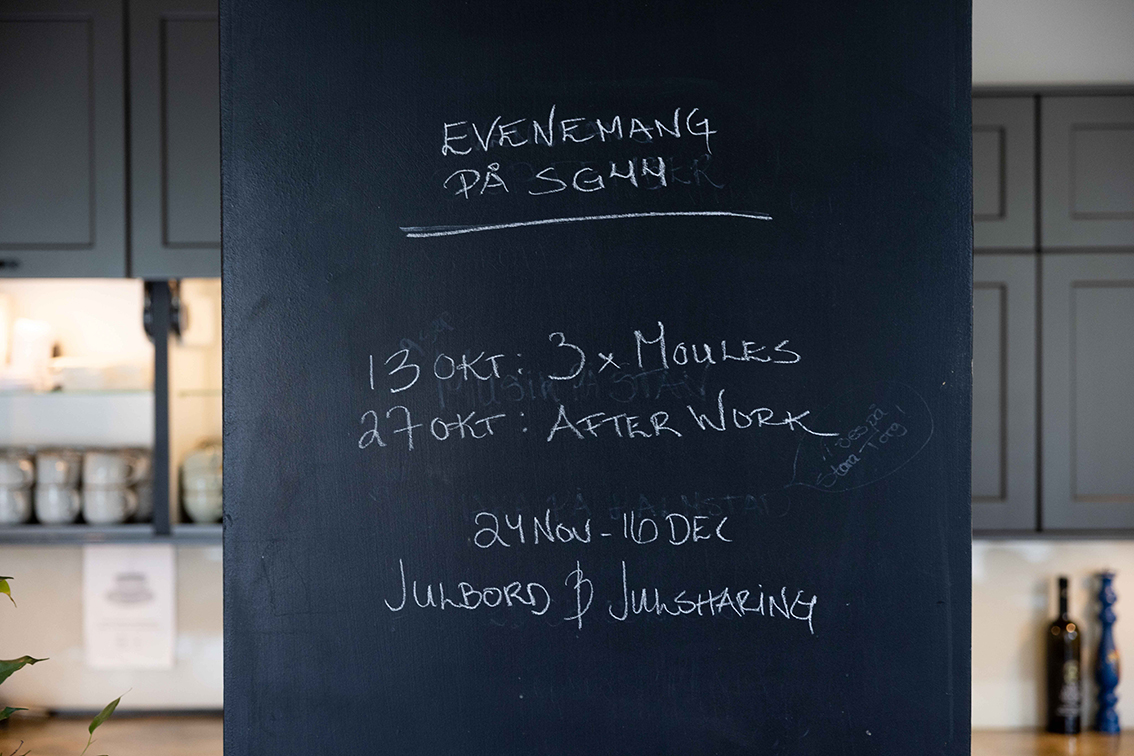 EVENEMANG
PÅ SG44
13 OKT: 3 x MOULES
27 OKT: AFTER WORK
24 NOV - 16 DEC
JULBORD & JULSHARING